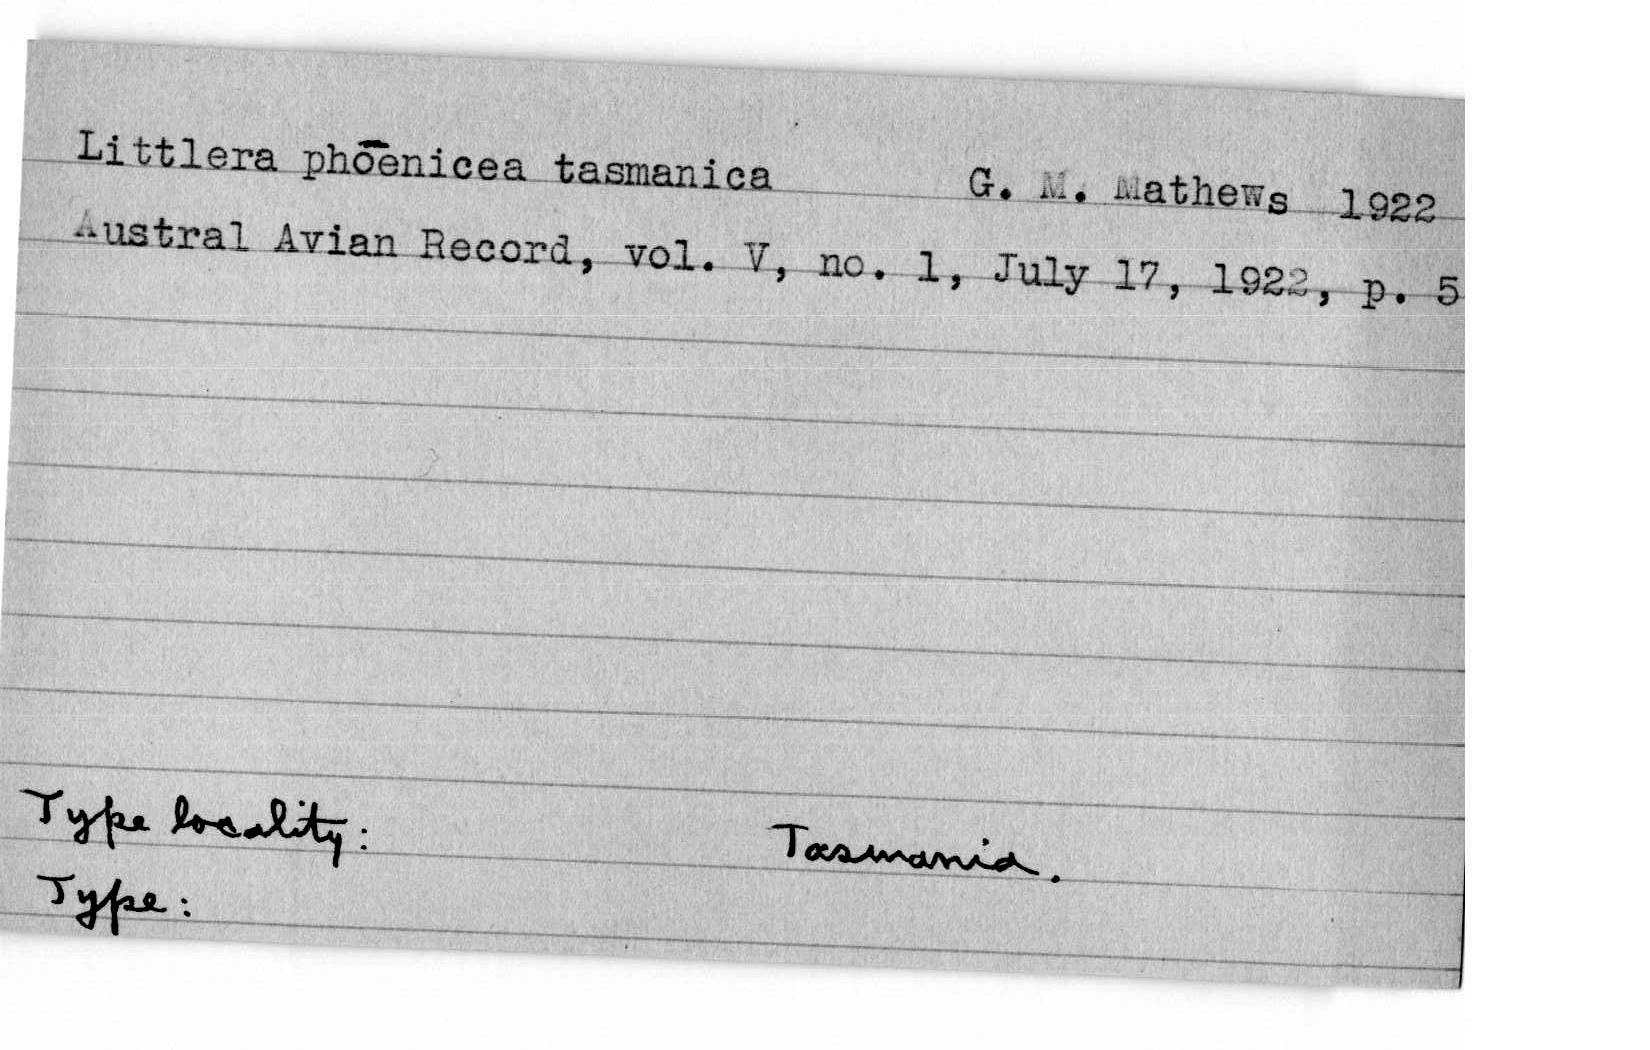 Littlera phōenicea tasmanica G. M. Mathews 1922
Austral Avian Record, vol. V, no. 1, July 17, 1922, p. 5
Type locality: Tasmania.
Type: